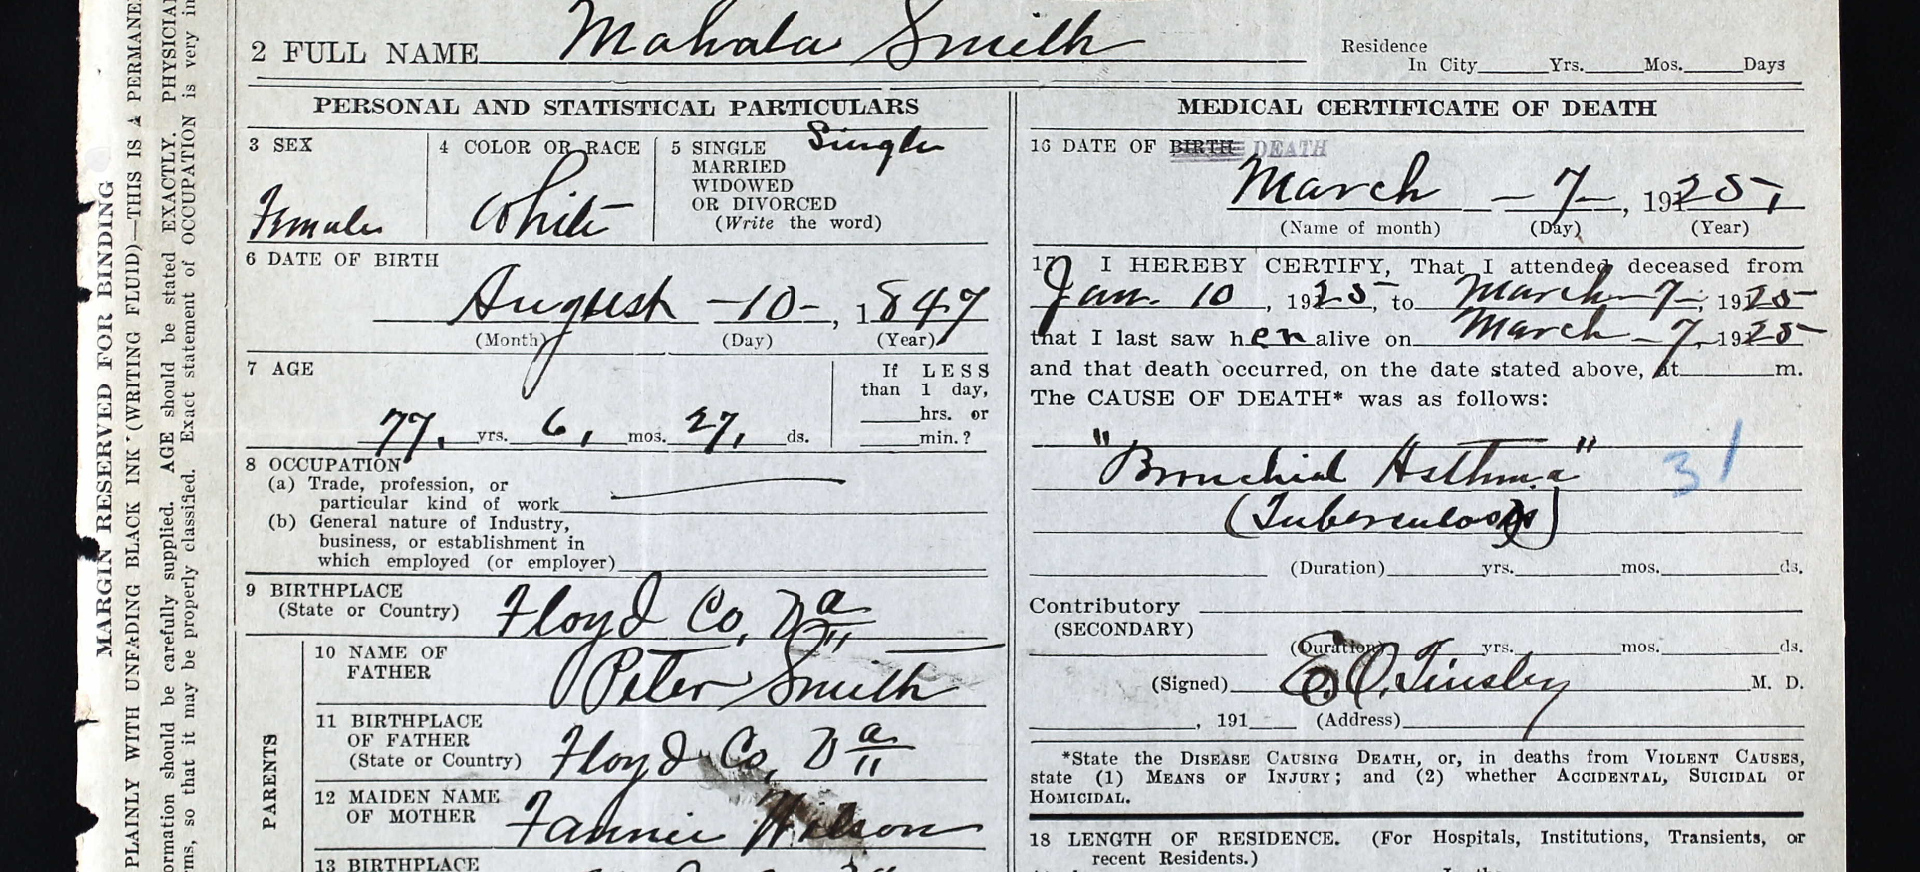 MARGIN RESERVED FOR BINDING
PLAINLY WITH UNFADING BLACK INK (WRITING FLUID)—THIS IS A PERMANE
ormation should be carefully supplied. AGE should be stated EXACTLY. PHYSICIA
rms, so that it may be properly classified. Exact statement of OCCUPATION is very in
2 FULL NAME Mahala Smith
Residence
In City Yrs. Mos. Days
PERSONAL AND STATISTICAL PARTICULARS
3 SEX
Female
4 COLOR OR RACE
White
5 SINGLE Single
MARRIED
WIDOWED
OR DIVORCED
(Write the word)
6 DATE OF BIRTH
August -10-, 1847
(Month) (Day) (Year)
7 AGE
77, yrs. 6, mos. 27, ds.
If LESS
than 1 day,
hrs. or
min.?
8 OCCUPATION
(a) Trade, profession, or
particular kind of work
(b) General nature of Industry,
business, or establishment in
which employed (or employer)
9 BIRTHPLACE
(State or Country) Floyd Co, Va
PARENTS
10 NAME OF
FATHER Peter Smith
11 BIRTHPLACE
OF FATHER
(State or Country) Floyd Co, Va
12 MAIDEN NAME
OF MOTHER Fannie Wilson
13 BIRTHPLACE
MEDICAL CERTIFICATE OF DEATH
16 DATE OF BIRTH DEATH
March -7-, 1925,
(Name of month) (Day) (Year)
17 I HEREBY CERTIFY, That I attended deceased from
Jan. 10, 1925, to March -7-, 1925
that I last saw her alive on March -7, 1925
and that death occurred, on the date stated above, at m.
The CAUSE OF DEATH* was as follows:
"Bronchial Asthma" 31
(Tuberculosis)
(Duration) yrs. mos. ds.
Contributory
(SECONDARY)
(Duration) yrs. mos. ds.
(Signed) E. O. Tinsley M. D.
, 191 (Address)
*State the DISEASE CAUSING DEATH, or, in deaths from VIOLENT CAUSES,
state (1) MEANS OF INJURY; and (2) whether ACCIDENTAL, SUICIDAL or
HOMICIDAL.
18 LENGTH OF RESIDENCE. (For Hospitals, Institutions, Transients, or
recent Residents.)